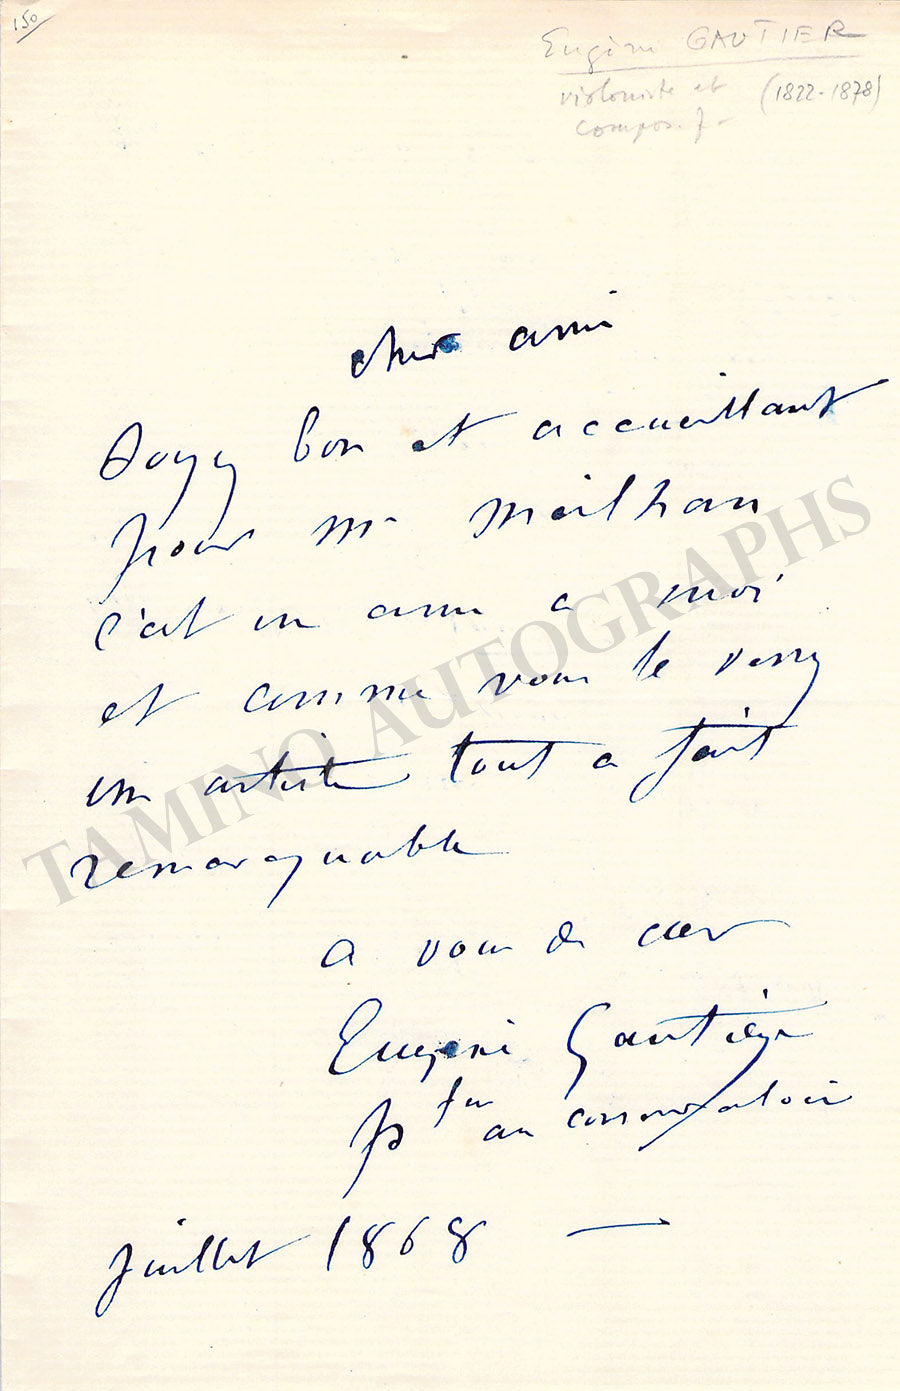 150
Eugène GAUTIER
violoniste et (1822-1878)
compos. f-
cher ami
Soyez bon et accueillant
pour Mr Meilhan
c'est un ami a moi
et comme vous le verrez
un artiste tout a fait
remarquable
a vous de cœur
Eugène Gautier
pfeur au conservatoire
Juillet 1868 —
TAMINO AUTOGRAPHS